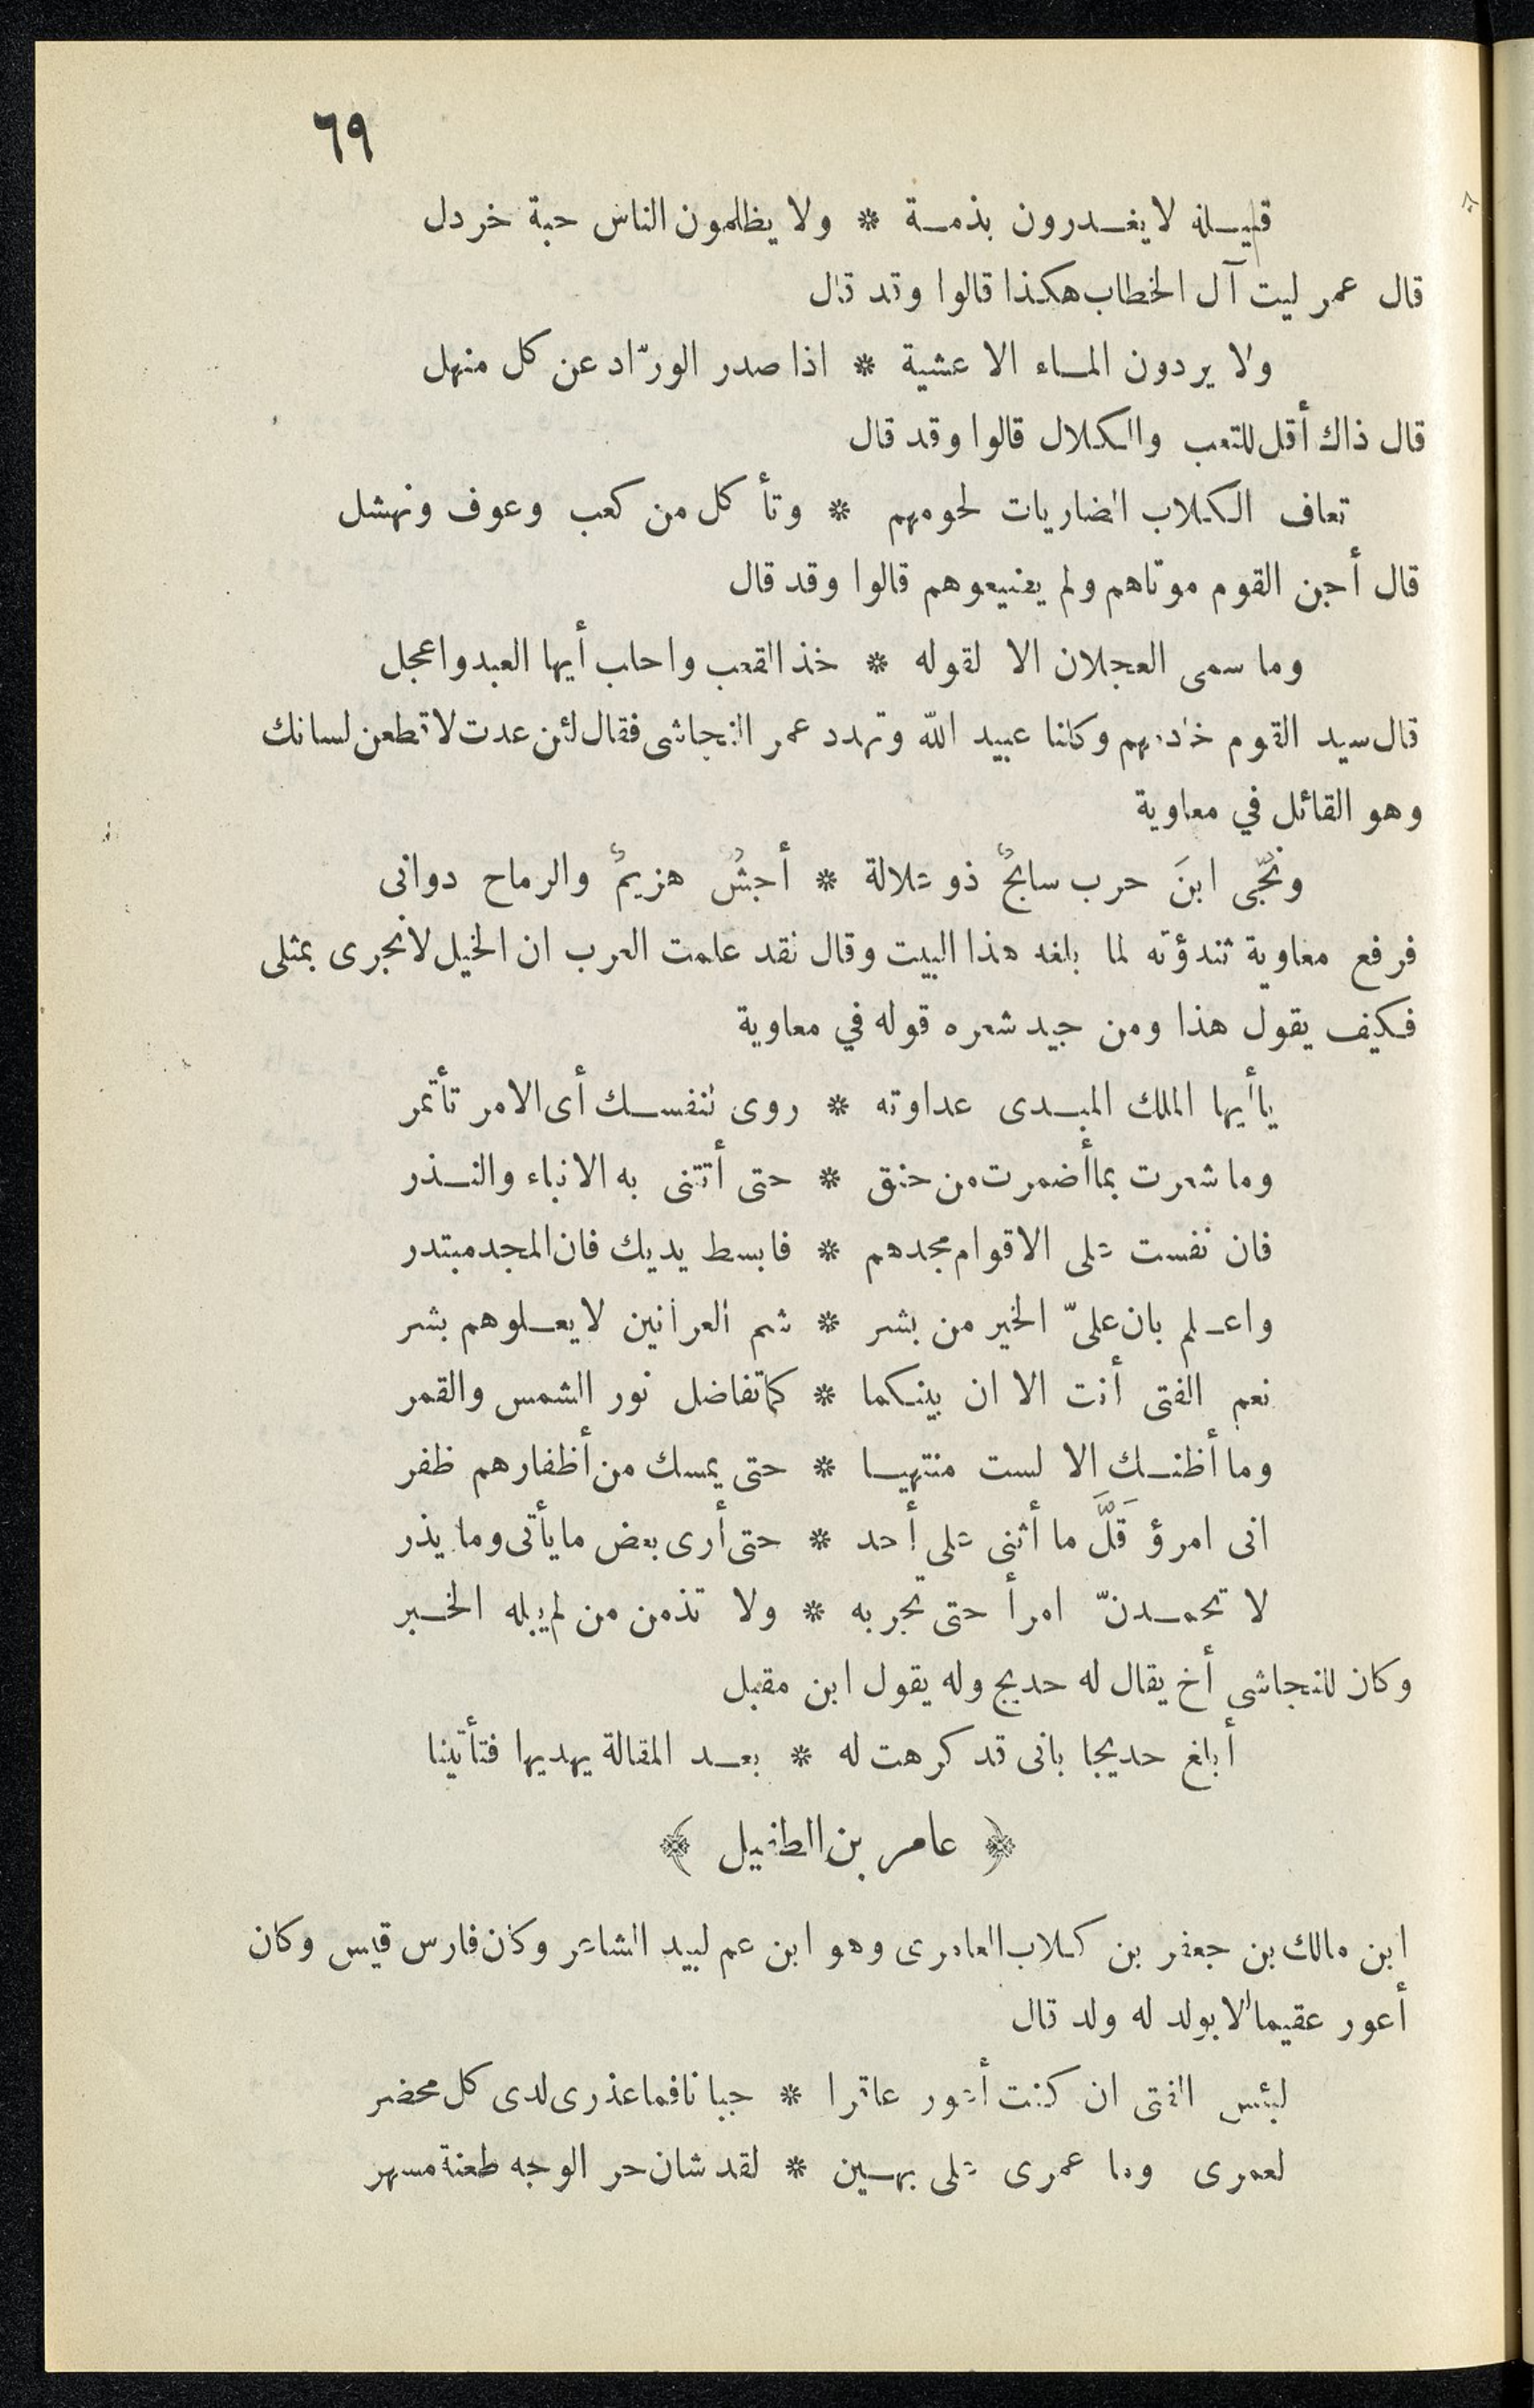 ٦٩
قبيلة لا يغدرون بذمة * ولا يظلمون الناس حبة خردل
قال عمر ليت آل الخطاب هكذا قالوا وقد قال
ولا يردون الماء الا عشية * اذا صدر الورّاد عن كل منهل
قال ذاك أقل للتعب والكلال قالوا وقد قال
تعاف الكلاب الضاريات لحومهم * وتأكل من كعب وعوف ونهشل
قال أجن القوم موتاهم ولم يضيعوهم قالوا وقد قال
وما سمى العجلان الا لقوله * خذ القعب واحلب أيها العبد واعجل
قال سيد القوم خادمهم وكلنا عبيد الله وتهدد عمر النجاشى فقال لئن عدت لاقطعن لسانك
وهو القائل في معاوية
ونجّى ابنَ حرب سابحٌ ذو علالة * أجشُّ هزيمٌ والرماح دوانى
فرفع معاوية ثندؤته لما بلغه هذا البيت وقال لقد علمت العرب ان الخيل لاتجرى بمثلى
فكيف يقول هذا ومن جيد شعره قوله في معاوية
ياأيها الملك المبدى عداوته * روى لنفسك أى الامر تأتمر
وما شعرت بما أضمرت من حنق * حتى أتتنى به الانباء والنذر
فان نفست على الاقوام مجدهم * فابسط يديك فان المجد مبتدر
واعلم بان علىّ الخير من بشر * شم العرانين لا يعلوهم بشر
نعم الفتى أنت الا ان بينكما * كما تفاضل نور الشمس والقمر
وما أظنك الا لست منتهيا * حتى يمسك من أظفارهم ظفر
انى امرؤ قَلَّ ما أثنى على أحد * حتى أرى بعض ما يأتى وما يذر
لا تحمدنّ امرأ حتى تجربه * ولا تذمن من لم يبله الخبر
وكان للنجاشى أخ يقال له حديج وله يقول ابن مقبل
أبلغ حديجا بانى قد كرهت له * بعد المقالة يهديها فتأتينا
﴿ عامر بن الطفيل ﴾
ابن مالك بن جعفر بن كلاب العامرى وهو ابن عم لبيد الشاعر وكان فارس قيس وكان
أعور عقيما لا يولد له ولد قال
لبئس الفتى ان كنت أعور عاقرا * جبانا فما عذرى لدى كل محضر
لعمرى وما عمرى على بهين * لقد شان حر الوجه طعنة مسهر